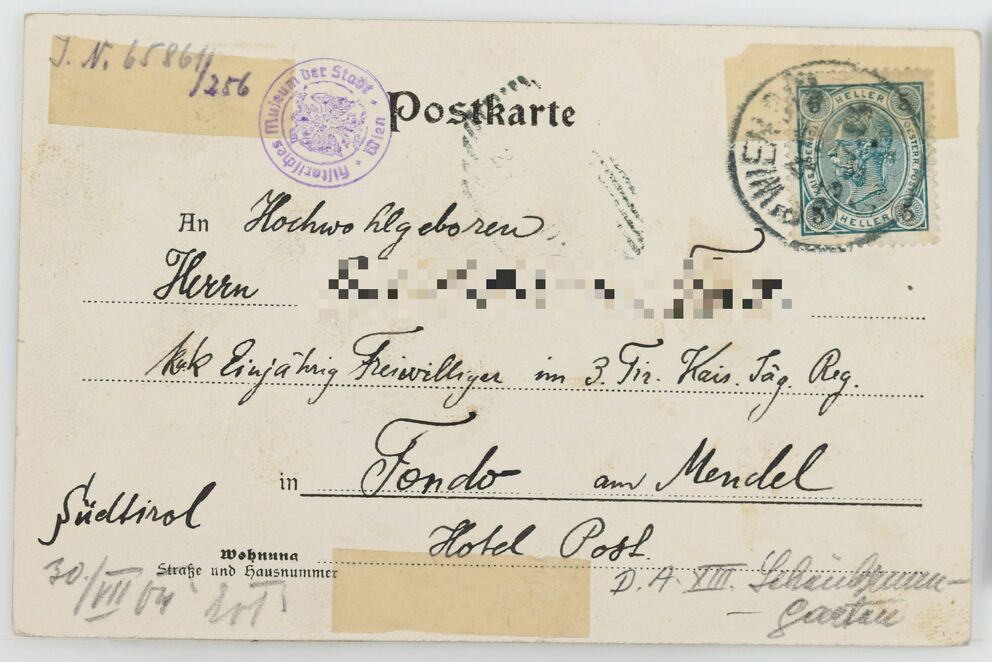 J. N. 65861/
/256
Historisches Museum der Stadt Wien
Postkarte
WIEN
5 HELLER 5
5 HELLER 5
An Hochwohlgeboren
Herrn
k.u.k Einjährig Freiwilliger im 3. Tir. Kais. Jäg. Reg.
in Fondo am Mendel
Südtirol
Hotel Post.
Wohnung
Straße und Hausnummer
30/VII 04
D. A. XIII. Schönbrunn-
- garten